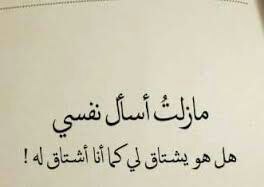 مازلتُ أسأل نفسي
هل هو يشتاق لي كما أنا أشتاق له !